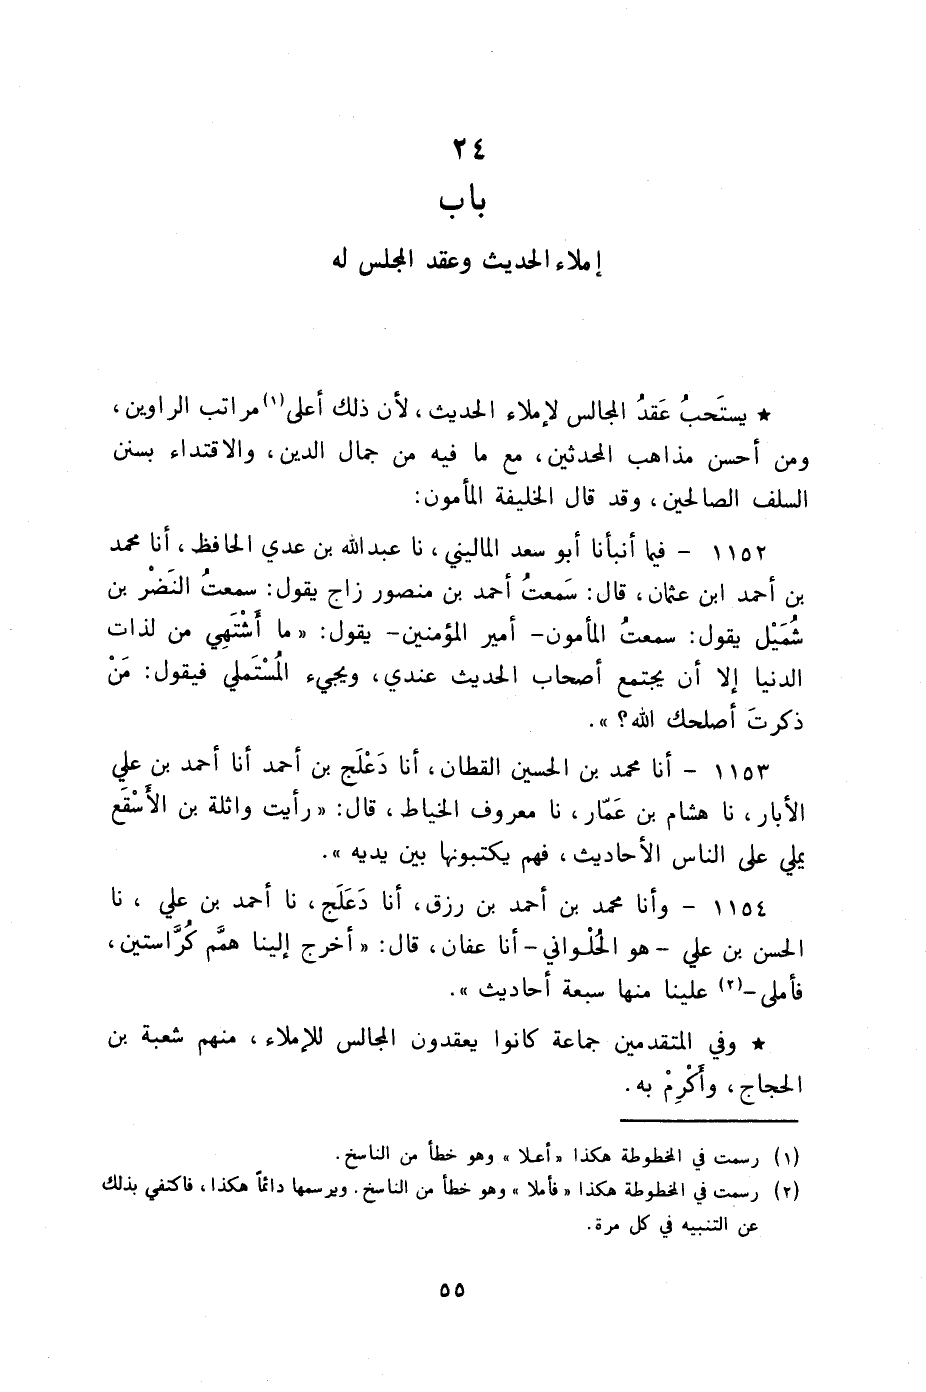 ٢٤
باب
إملاء الحديث وعقد المجلس له
★ يستَحبُ عَقدُ المجالس لإملاء الحديث، لأن ذلك أعلى(١) مراتب الراوين،
ومن أحسن مذاهب المحدثين، مع ما فيه من جمال الدين، والاقتداء بسنن
السلف الصالحين، وقد قال الخليفة المأمون:
١١٥٢ - فيما أنبأنا أبو سعد الماليني، نا عبدالله بن عدي الحافظ، أنا محمد
بن أحمد ابن عثمان، قال: سَمعتُ أحمد بن منصور زاج يقول: سمعتُ النَضْر بن
شُمَيْل يقول: سمعتُ المأمون- أمير المؤمنين- يقول: « ما أَشْتَهِي من لذات
الدنيا إلا أن يجتمع أصحاب الحديث عندي، ويجيء المُسْتَملي فيقول: مَنْ
ذكرتَ أصلحك الله؟ ».
١١٥٣ - أنا محمد بن الحسين القطان، أنا دَعْلَج بن أحمد أنا أحمد بن علي
الأبار، نا هشام بن عَمّار، نا معروف الخياط، قال: « رأيت واثلة بن الأَسْقَع
يملي على الناس الأحاديث، فهم يكتبونها بين يديه ».
١١٥٤ - وأنا محمد بن أحمد بن رزق، أنا دَعَلَج، نا أحمد بن علي ، نا
الحسن بن علي - هو الحُلْواني - أنا عفان، قال: « أخرج إلينا همَّم كُرَّاستين،
فأملى-(٢) علينا منها سبعة أحاديث ».
★ وفي المتقدمين جماعة كانوا يعقدون المجالس للإملاء، منهم شعبة بن
الحجاج، وأَكْرِمْ به.
(١) رسمت في المخطوطة هكذا « أعلا » وهو خطأ من الناسخ.
(٢) رسمت في المخطوطة هكذا « فأملا » وهو خطأ من الناسخ. ويرسمها دائماً هكذا، فاكتفي بذلك
عن التنبيه في كل مرة.
٥٥